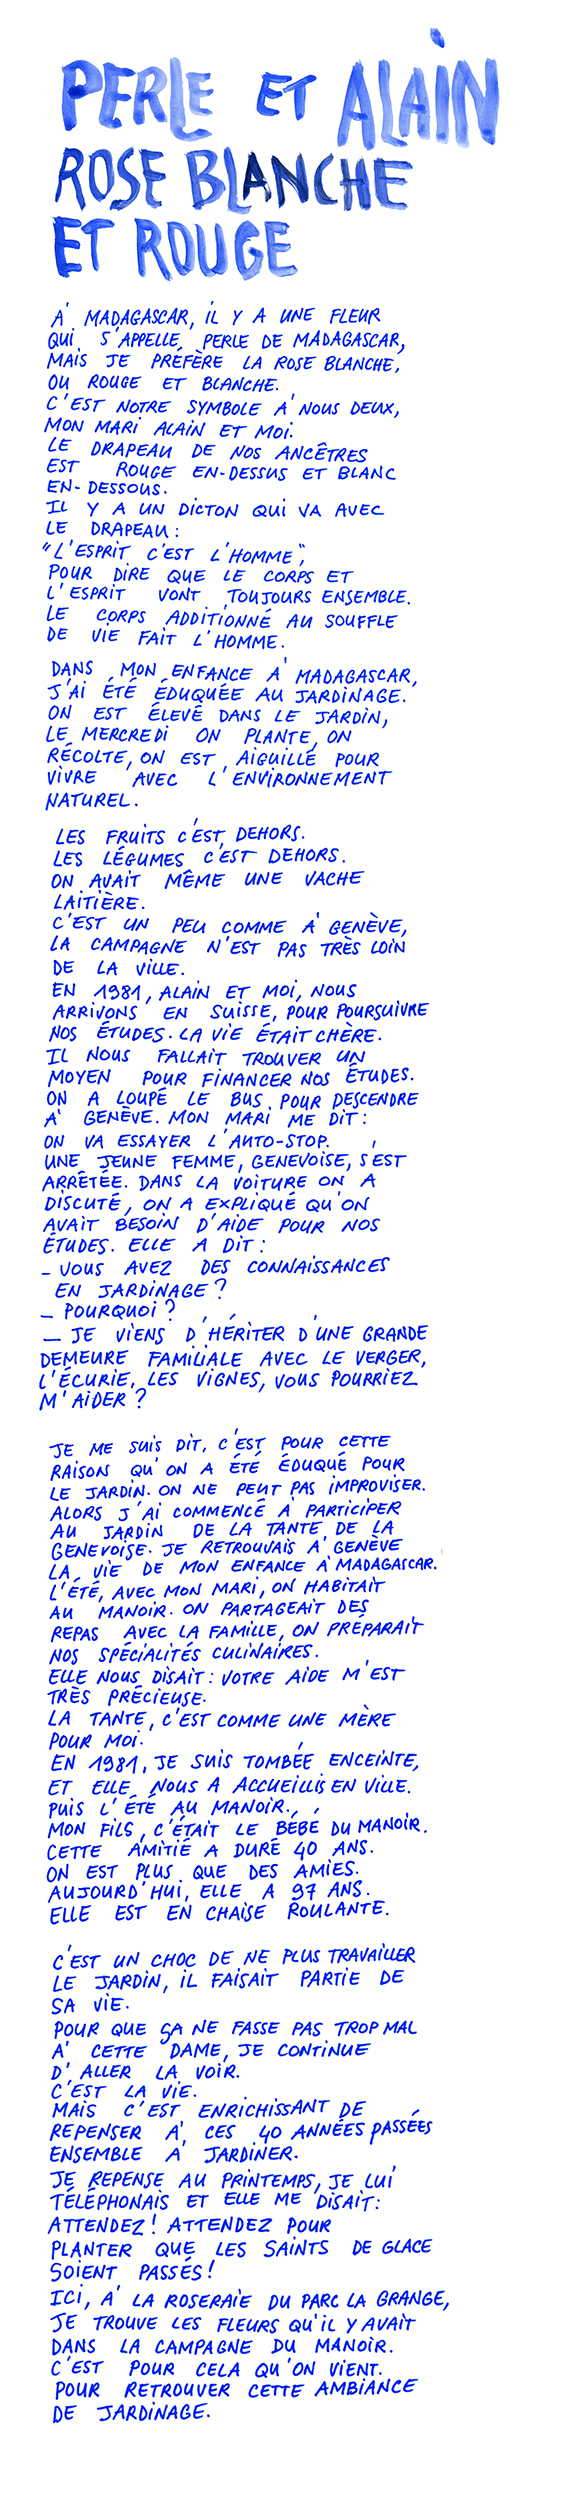 PERLE ET ALAIN
ROSE BLANCHE
ET ROUGE
À MADAGASCAR, IL Y A UNE FLEUR
QUI S'APPELLE PERLE DE MADAGASCAR,
MAIS JE PRÉFÈRE LA ROSE BLANCHE,
OU ROUGE ET BLANCHE.
C'EST NOTRE SYMBOLE À NOUS DEUX,
MON MARI ALAIN ET MOI.
LE DRAPEAU DE NOS ANCÊTRES
EST ROUGE EN-DESSUS ET BLANC
EN-DESSOUS.
IL Y A UN DICTON QUI VA AVEC
LE DRAPEAU :
"L'ESPRIT C'EST L'HOMME",
POUR DIRE QUE LE CORPS ET
L'ESPRIT VONT TOUJOURS ENSEMBLE.
LE CORPS ADDITIONNÉ AU SOUFFLE
DE VIE FAIT L'HOMME.
DANS MON ENFANCE À MADAGASCAR,
J'AI ÉTÉ ÉDUQUÉE AU JARDINAGE.
ON EST ÉLEVÉ DANS LE JARDIN,
LE MERCREDI ON PLANTE, ON
RÉCOLTE, ON EST AIGUILLÉ POUR
VIVRE AVEC L'ENVIRONNEMENT
NATUREL.
LES FRUITS C'EST DEHORS.
LES LÉGUMES C'EST DEHORS.
ON AVAIT MÊME UNE VACHE
LAITIÈRE.
C'EST UN PEU COMME À GENÈVE,
LA CAMPAGNE N'EST PAS TRÈS LOIN
DE LA VILLE.
EN 1981, ALAIN ET MOI, NOUS
ARRIVONS EN SUISSE, POUR POURSUIVRE
NOS ÉTUDES. LA VIE ÉTAIT CHÈRE.
IL NOUS FALLAIT TROUVER UN
MOYEN POUR FINANCER NOS ÉTUDES.
ON A LOUPÉ LE BUS POUR DESCENDRE
À GENÈVE. MON MARI ME DIT :
ON VA ESSAYER L'AUTO-STOP.
UNE JEUNE FEMME, GENEVOISE, S'EST
ARRÊTÉE. DANS LA VOITURE ON A
DISCUTÉ, ON A EXPLIQUÉ QU'ON
AVAIT BESOIN D'AIDE POUR NOS
ÉTUDES. ELLE A DIT :
- VOUS AVEZ DES CONNAISSANCES
EN JARDINAGE ?
- POURQUOI ?
- JE VIENS D'HÉRITER D'UNE GRANDE
DEMEURE FAMILIALE AVEC LE VERGER,
L'ÉCURIE, LES VIGNES, VOUS POURRIEZ
M'AIDER ?
JE ME SUIS DIT, C'EST POUR CETTE
RAISON QU'ON A ÉTÉ ÉDUQUÉ POUR
LE JARDIN. ON NE PEUT PAS IMPROVISER.
ALORS J'AI COMMENCÉ À PARTICIPER
AU JARDIN DE LA TANTE, DE LA
GENEVOISE. JE RETROUVAIS À GENÈVE
LA VIE DE MON ENFANCE À MADAGASCAR.
L'ÉTÉ, AVEC MON MARI, ON HABITAIT
AU MANOIR. ON PARTAGEAIT DES
REPAS AVEC LA FAMILLE, ON PRÉPARAIT
NOS SPÉCIALITÉS CULINAIRES.
ELLE NOUS DISAIT : VOTRE AIDE M'EST
TRÈS PRÉCIEUSE.
LA TANTE, C'EST COMME UNE MÈRE
POUR MOI.
EN 1981, JE SUIS TOMBÉE ENCEINTE,
ET ELLE NOUS A ACCUEILLIS EN VILLE.
PUIS L'ÉTÉ AU MANOIR.
MON FILS, C'ÉTAIT LE BÉBÉ DU MANOIR.
CETTE AMITIÉ A DURÉ 40 ANS.
ON EST PLUS QUE DES AMIES.
AUJOURD'HUI, ELLE A 97 ANS.
ELLE EST EN CHAISE ROULANTE.
C'EST UN CHOC DE NE PLUS TRAVAILLER
LE JARDIN, IL FAISAIT PARTIE DE
SA VIE.
POUR QUE ÇA NE FASSE PAS TROP MAL
À CETTE DAME, JE CONTINUE
D'ALLER LA VOIR.
C'EST LA VIE.
MAIS C'EST ENRICHISSANT DE
REPENSER À CES 40 ANNÉES PASSÉES
ENSEMBLE À JARDINER.
JE REPENSE AU PRINTEMPS, JE LUI
TÉLÉPHONAIS ET ELLE ME DISAIT :
ATTENDEZ ! ATTENDEZ POUR
PLANTER QUE LES SAINTS DE GLACE
SOIENT PASSÉS !
ICI, À LA ROSERAIE DU PARC LA GRANGE,
JE TROUVE LES FLEURS QU'IL Y AVAIT
DANS LA CAMPAGNE DU MANOIR.
C'EST POUR CELA QU'ON VIENT.
POUR RETROUVER CETTE AMBIANCE
DE JARDINAGE.